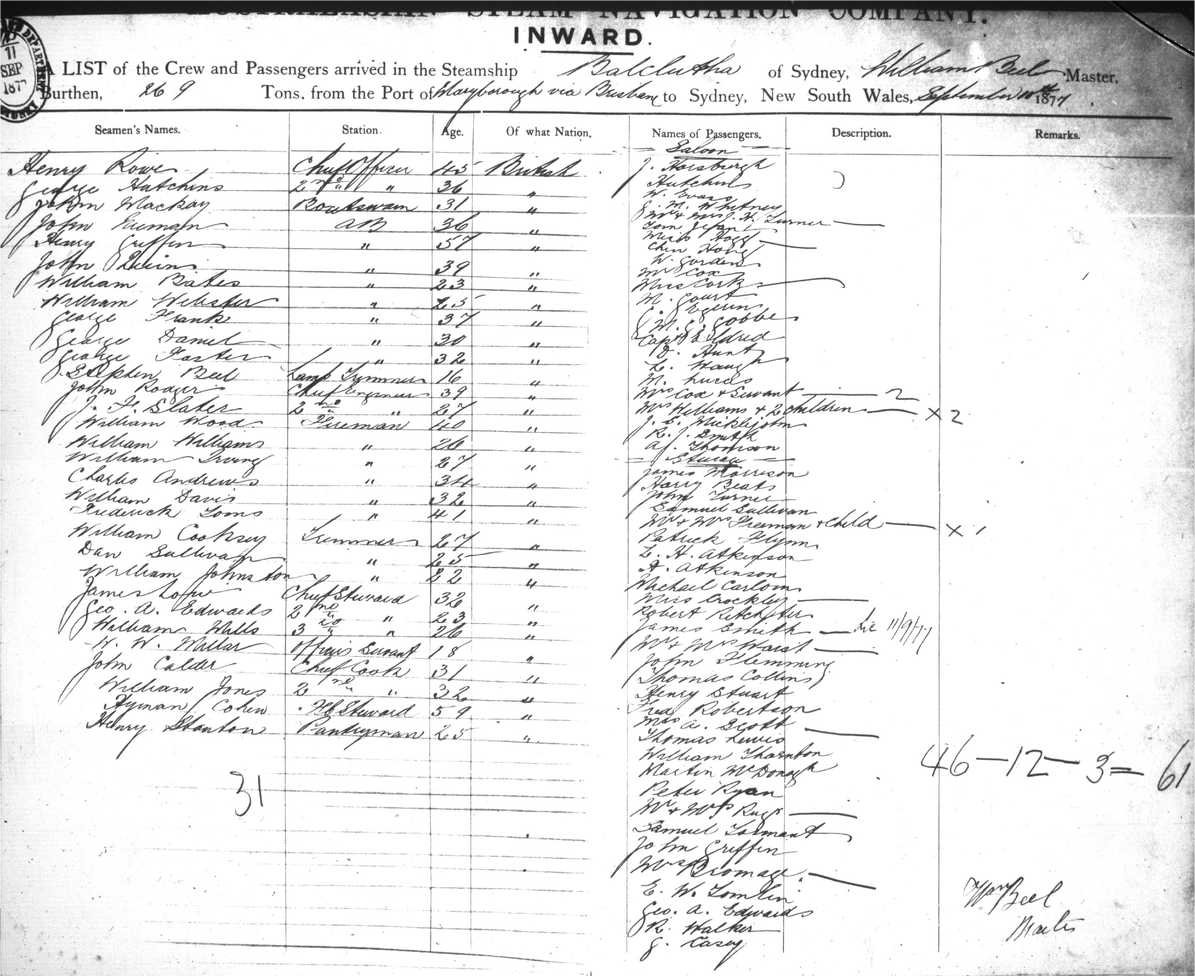 AUSTRALASIAN STEAM NAVIGATION COMPANY.
INWARD.
11 SEP 1877
A LIST of the Crew and Passengers arrived in the Steamship Balclutha of Sydney, William Beel Master,
Burthen, 269 Tons, from the Port of Maryborough via Brisbane to Sydney, New South Wales, September 1877
Seamen's Names. Station. Age. Of what Nation. Names of Passengers. Description. Remarks.
Henry Rowe Chief Officer 45 British
George Hutchins 2nd " 36 "
John Mackay Boatswain 31 "
John AB 36 "
Henry Griffin " 57 "
John " 39 "
William Bates " 23 "
William Webster " 25 "
George Frank " 37 "
George Daniel " 30 "
George Foster " 32 "
Stephen Beel Lamp Trimmer 16 "
John Rodger Chief Engineer 39 "
J. F. Slater 2nd " 27 "
William Wood Fireman 40 "
William Williams " 26 "
William Irving " 27 "
Charles Andrews " 34 "
William Davis " 32 "
Frederick Toms " 41 "
William Cooksey Trimmer 27 "
Dan Sullivan " 25 "
William Johnston " 22 "
James Chief Steward 32 "
Geo. A. Edwards 2nd " 23 "
William Wills 3rd " 26 "
W. W. Officers Servant 18 "
John Calder Chief Cook 31 "
William Jones 2nd " 32 "
Hyman Cohen Steward 59 "
Henry Stanton Pantryman 25 "
31
Saloon
J. Horsburgh
Hutchins
W. Evans
G. M. Whitney
Mr & Mrs J. H. Turner
Tom
Miss Hogg
Chin Hong
W. Gordon
Mr Cox
Miss Cork
M. Court
J.
W. G. Gobbe
Capt Eldred
D. Hunt
L. Haugh
M.
Mrs Cox & Servant 2
Mrs Williams & 2 children x 2
J. E. Micklejohn
R. J. Smith
A. J. Thomson
Steerage
James Morrison
Harry Beats
John Turner
Samuel Sullivan
Mr & Mrs Freeman & child x 1
Patrick Flynn
L. H. Atkinson
A. Atkinson
Michael Carlom
Miss Crockley
Robert Ritchter
James Smith 11/9/77
Mr & Mrs Worst
John Flemming
Thomas Collins
Henry Stuart
Fred Robertson
Mrs A. Scott
Thomas Lewis
William Thornton
Martin McDonogh
Peter Ryan
Mr & Mrs
Samuel Tormant
John Griffin
Mrs Bromage
E. W. Tomlin
Geo. A. Edwards
R. Walker
J. Casey
46 — 12 — 3 = 61
Wm Beel
Master